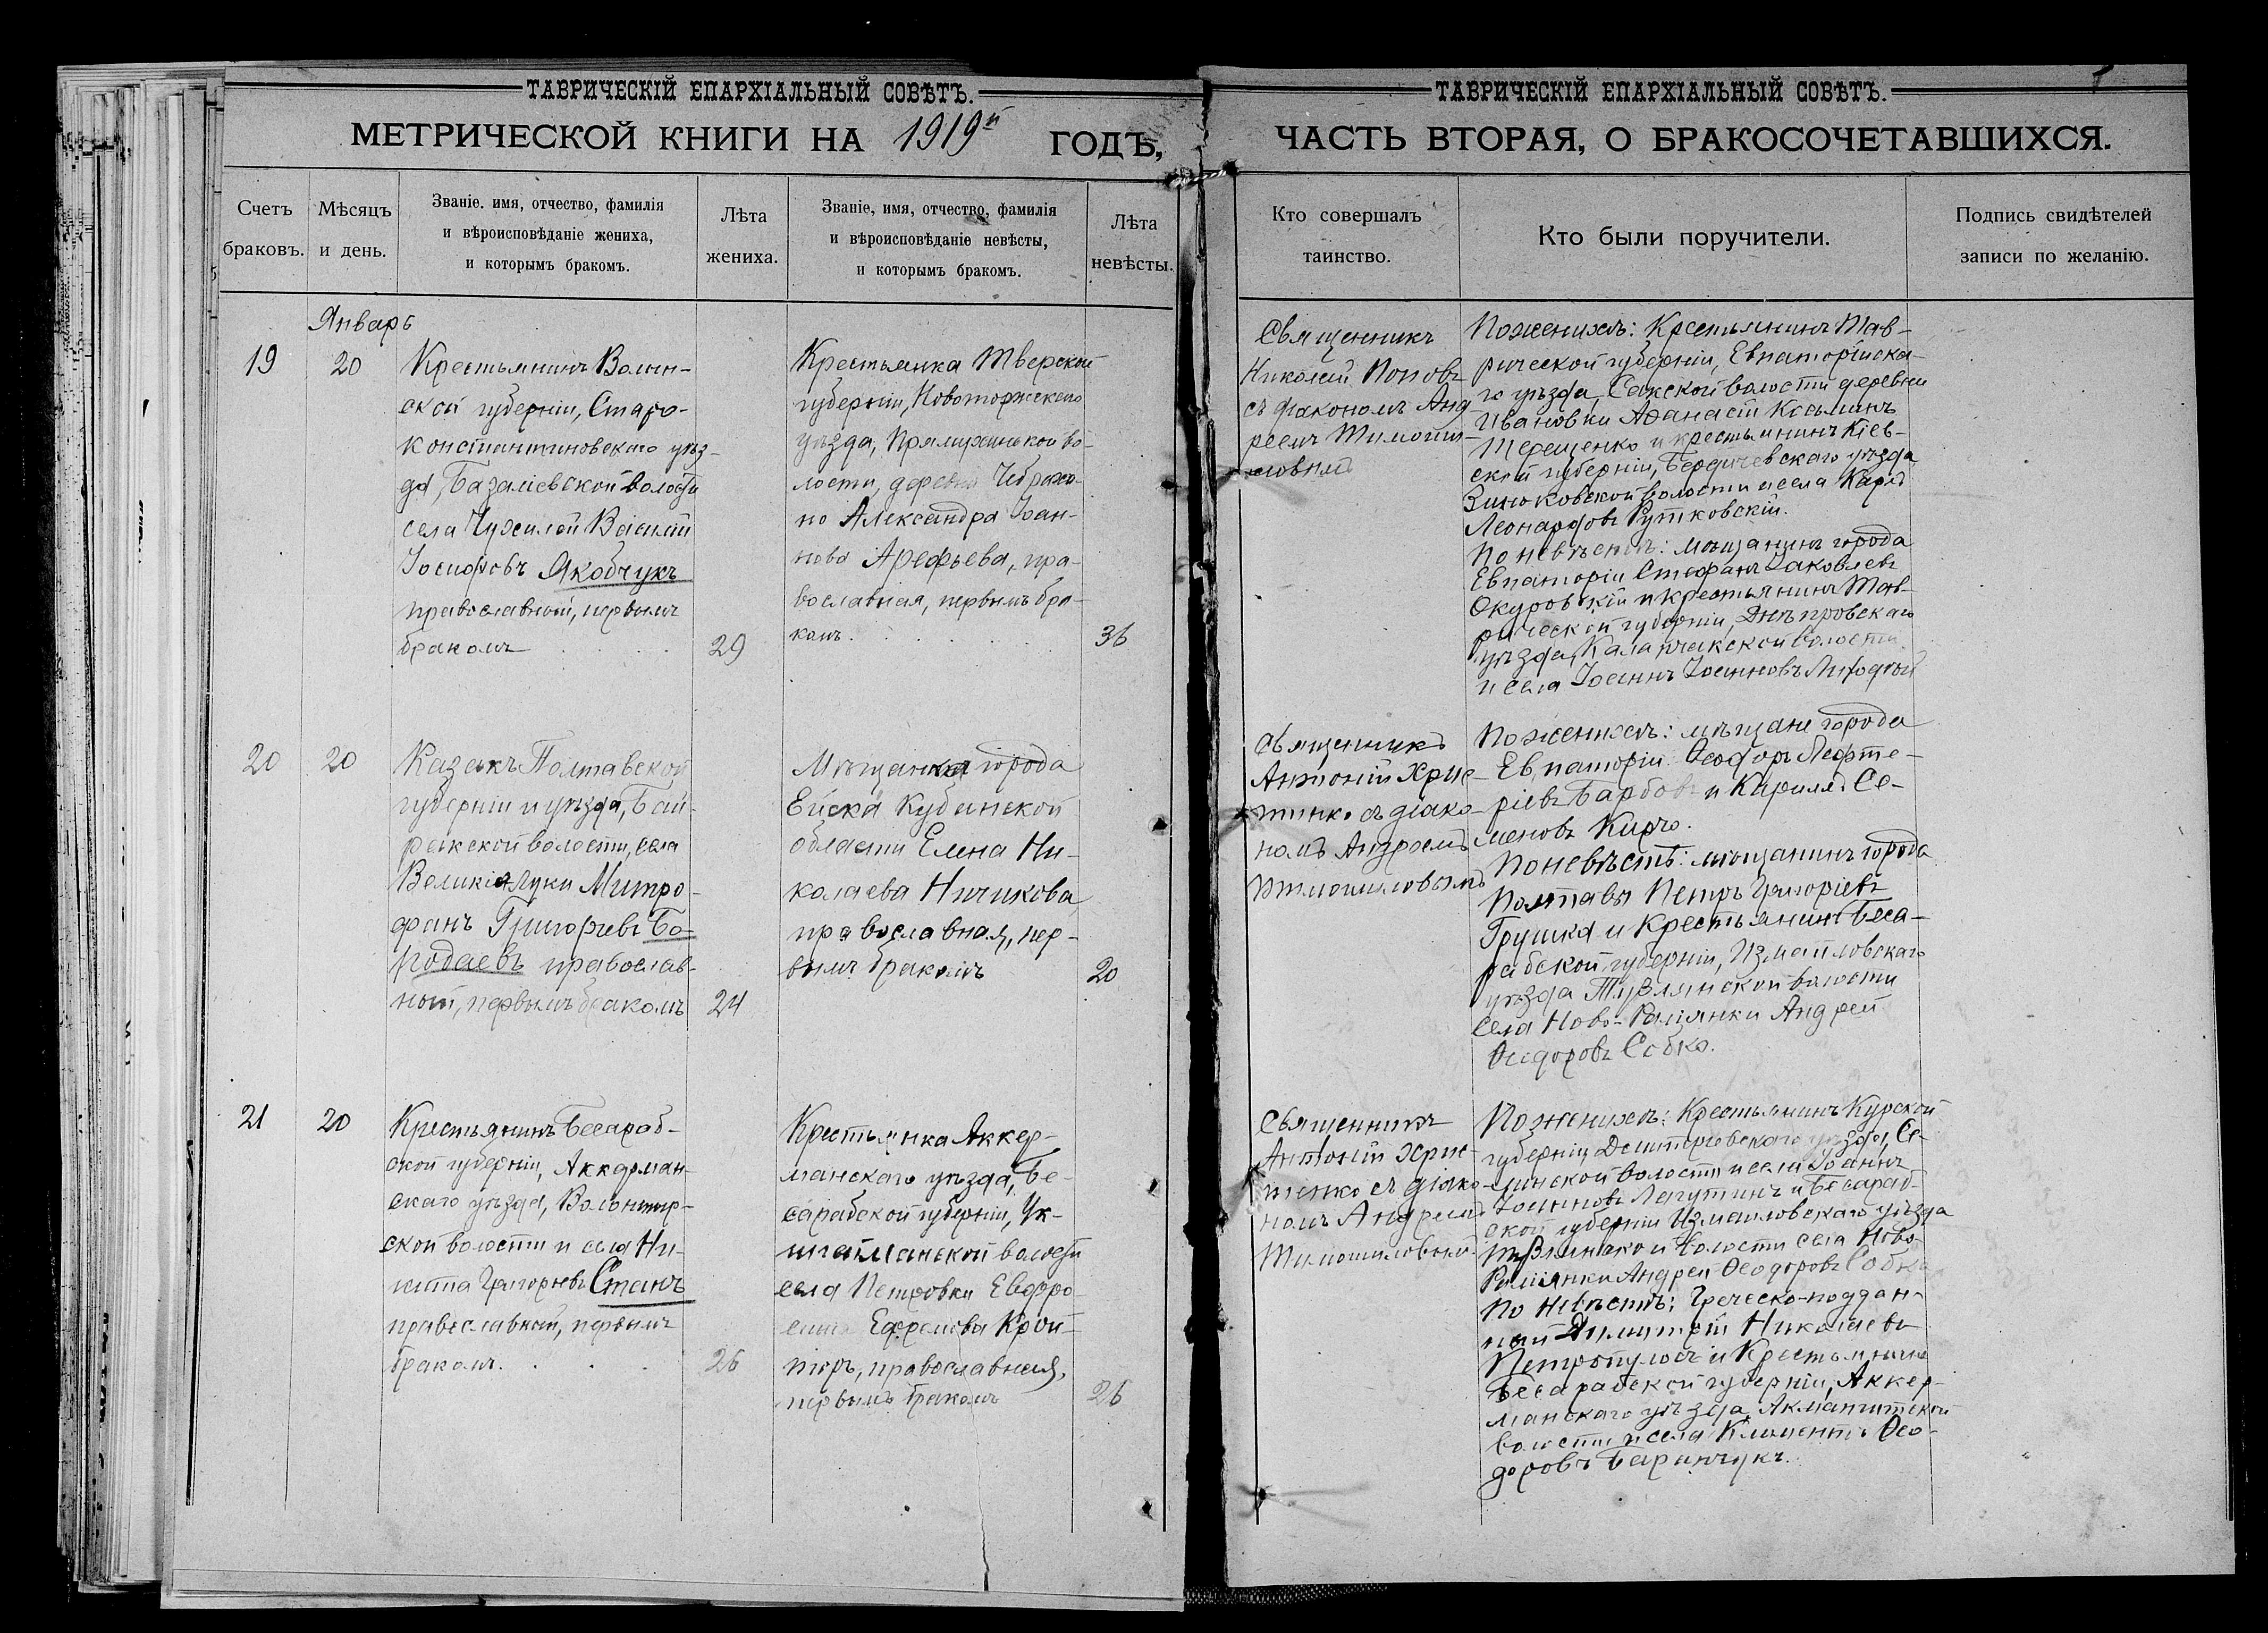 ТАВРИЧЕСКІЙ ЕПАРХІАЛЬНЫЙ СОВѢТЪ.
МЕТРИЧЕСКОЙ КНИГИ НА 1919й ГОДЪ,
Счетъ
браковъ.
Мѣсяцъ
и день.
Званіе. имя, отчество, фамилія
и вѣроисповѣданіе жениха,
и которымъ бракомъ.
Лѣта
жениха.
Званіе, имя, отчество, фамилія
и вѣроисповѣданіе невѣсты,
и которымъ бракомъ.
Лѣта
невѣсты.
Январь
19
20
Крестьянинъ Волын-
ской губерніи, Старо-
константиновскаго уѣз-
да, Базаліевской волости
села Василій
Іосифовъ Якобчукъ
православный, первымъ
бракомъ
29
Крестьянка Тверской
губерніи, Новоторжскаго
уѣзда, Прямухинской во-
лости, деревни
но Александра Іоан-
нова Арефьева, пра-
вославная, первымъ бра-
комъ.
36
20
20
Казакъ Полтавской
губерніи и уѣзда, Бай-
ракской волости, села
Великія Луки Митро-
фанъ Григорьевъ Бо-
родаевъ православ-
ный, первымъ бракомъ
24
Мѣщанка города
Ейска Кубанской
области Елена Ни-
колаева Ничикова
православная, пер-
вымъ бракомъ
20
21
20
Крестьянинъ Бесараб-
ской губерніи, Аккерман-
скаго уѣзда, Волонтир-
ской волости и села Ни-
кита Григорьевъ Станъ
православный, первымъ
бракомъ.
26
Крестьянка Аккер-
манскаго уѣзда, Бе-
сарабской губерніи,
волости
села Петровки Евфро-
синія Ефремова Крой-
торъ, православная,
первымъ бракомъ
26
ТАВРИЧЕСКІЙ ЕПАРХІАЛЬНЫЙ СОВѢТЪ.
ЧАСТЬ ВТОРАЯ, О БРАКОСОЧЕТАВШИХСЯ.
Кто совершалъ
таинство.
Кто были поручители.
Подпись свидѣтелей
записи по желанію.
Священникъ
Николай Поповъ
съ діакономъ Анд-
реемъ Тимоши-
ловымъ
По женихѣ: Крестьянинъ Тав-
рической губерніи, Евпаторійска-
го уѣзда, Сакской волости деревни
Ивановки Афанасій Косьминъ
Терещенко и крестьянинъ Кіев-
ской губерніи, Бердичевскаго уѣзда
волости и села Карлъ
Леонардовъ Рутковскій.
По невѣстѣ: мѣщанинъ города
Евпаторіи Стефанъ Іаковлевъ
Окуровскій и крестьянинъ Тав-
рической губерніи, Днѣпровскаго
уѣзда, Каланчакской волости
и села Іоаннъ Іоанновъ
Священникъ
Антоній Хрис-
тенко съ діако-
номъ Андреемъ
Тимошиловымъ
По женихѣ: мѣщане города
Евпаторіи Ѳеодоръ Лефте-
ріевъ Барбовъ и Кириллъ Се-
меновъ
По невѣстѣ: мѣщанинъ города
Полтавы Петръ Григоріевъ
Грушка и Крестьянинъ Беса-
рабской губерніи, Измаиловскаго
уѣзда волости
села Ново- Андрей
Ѳеодоровъ Собко.
Священникъ
Антоній Хрис-
тенко съ діако-
номъ Андреемъ
Тимошиловымъ
По женихѣ: Крестьянинъ Курской
губерніи Дмитріевскаго уѣзда, Се-
минской волости и села Іоаннъ
Іоанновъ Лагутинъ и Бесараб-
ской губерніи Измаиловскаго уѣзда
волости села Ново-
Андрей Ѳеодоровъ Собко
По невѣстѣ: Греческо-поддан-
ный Димитрій Николаевъ
Петропулосъ и Крестьянинъ
Бесарабской губерніи, Аккер-
манскаго уѣзда, Акмангитской
волости и села Климентъ Ѳео-
доровъ Баранчукъ.